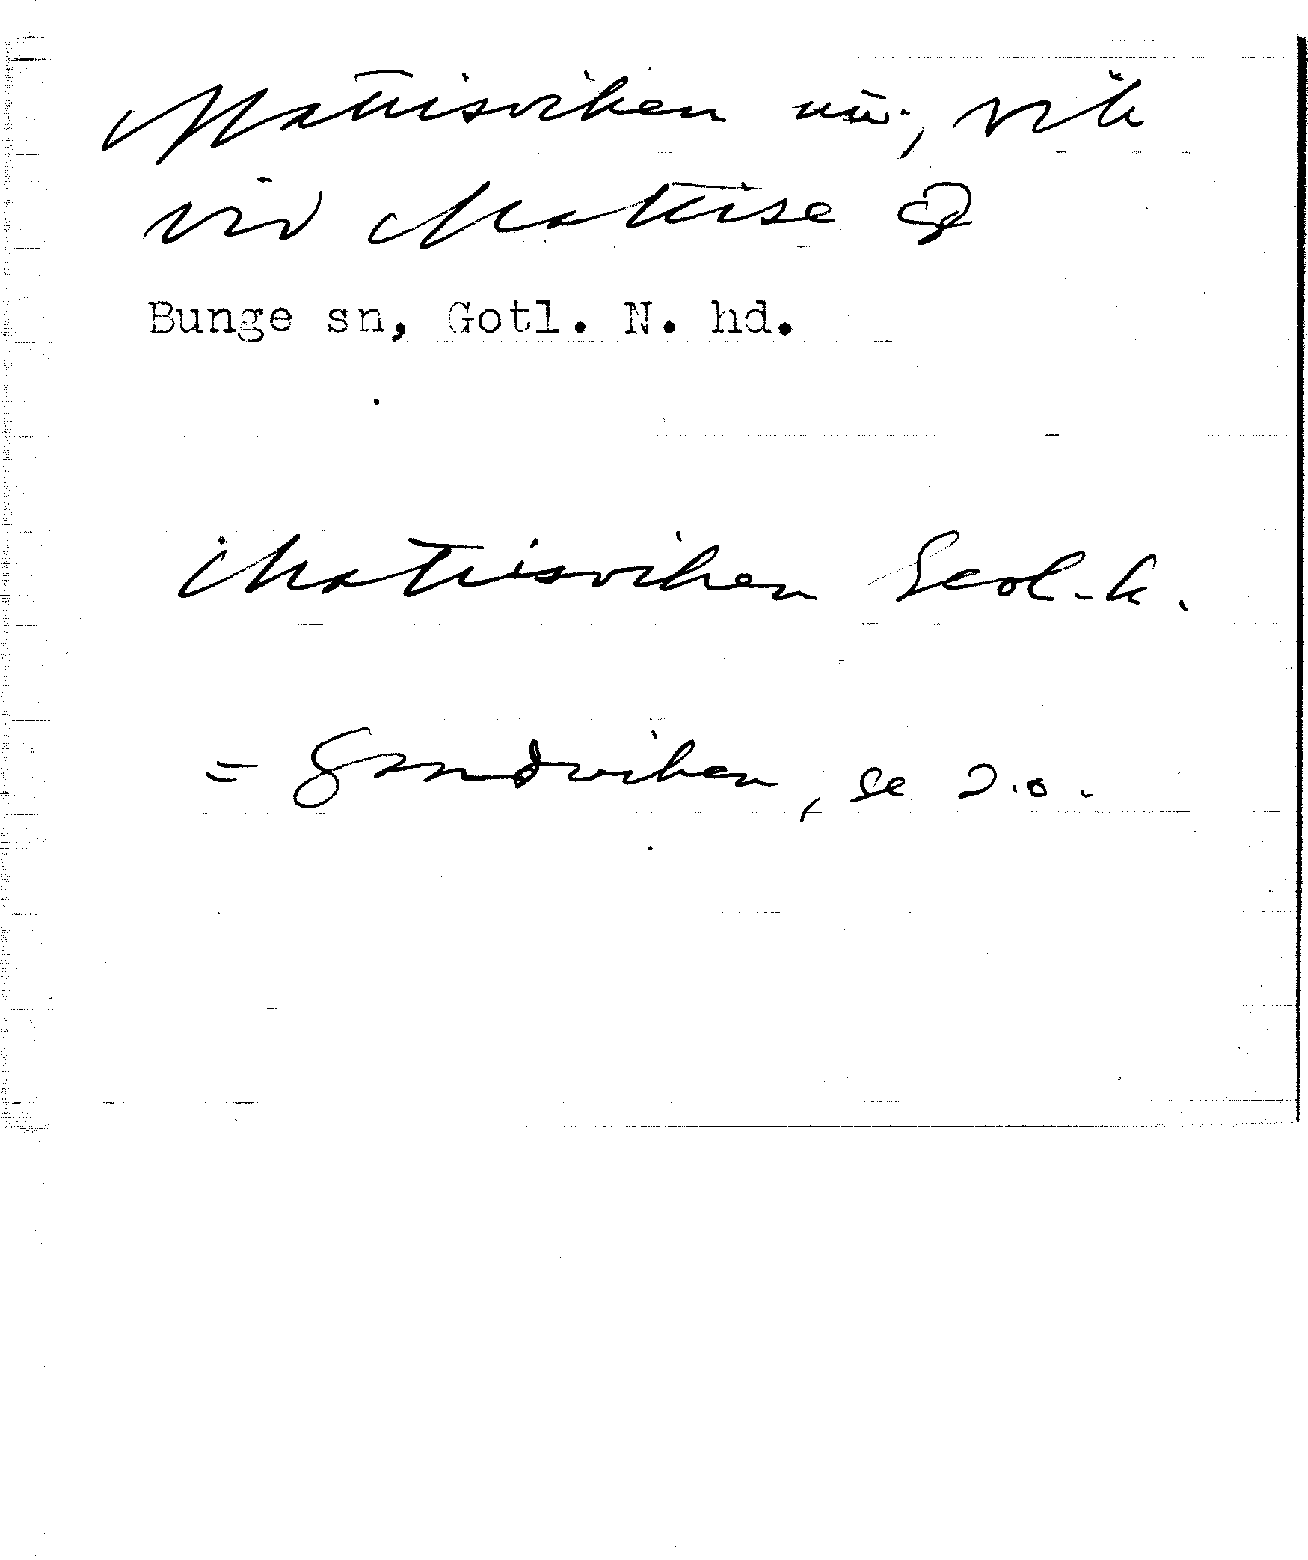 Mattisviken nu., vik
vid Mattise
Bunge sn, Gotl. N. hd.
Mattisviken Geol. k.
= Sandviken, se d.o.